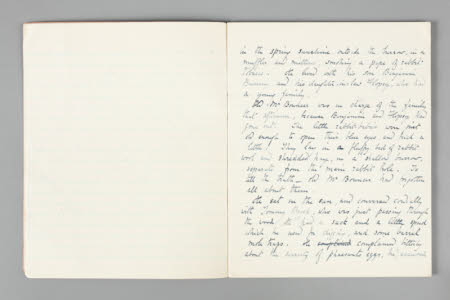 in the spring sunshine outside the burrow, in a
muffler and mittens, smoking a pipe of rabbit
tobacco. He lived with his son Benjamin
Bunny and his daughter-in-law Flopsy, who had
a young family.
Old Mr Bouncer was in charge of the family
that afternoon, because Benjamin and Flopsy had
gone out. The little rabbit-babies were just
old enough to open their blue eyes and kick a
little. They lay in a fluffy bed of rabbit
wool and shredded hay, in a shallow burrow,
separate from the main rabbit hole. To
tell the truth — old Mr Bouncer had forgotten
all about them.
He sat in the sun, and conversed cordially
with Tommy Brock, who was just passing through
the wood. He had a sack and a little spud
which he used for digging, and some
mole traps. He complained bitterly
about the scarcity of pheasants eggs, he accused